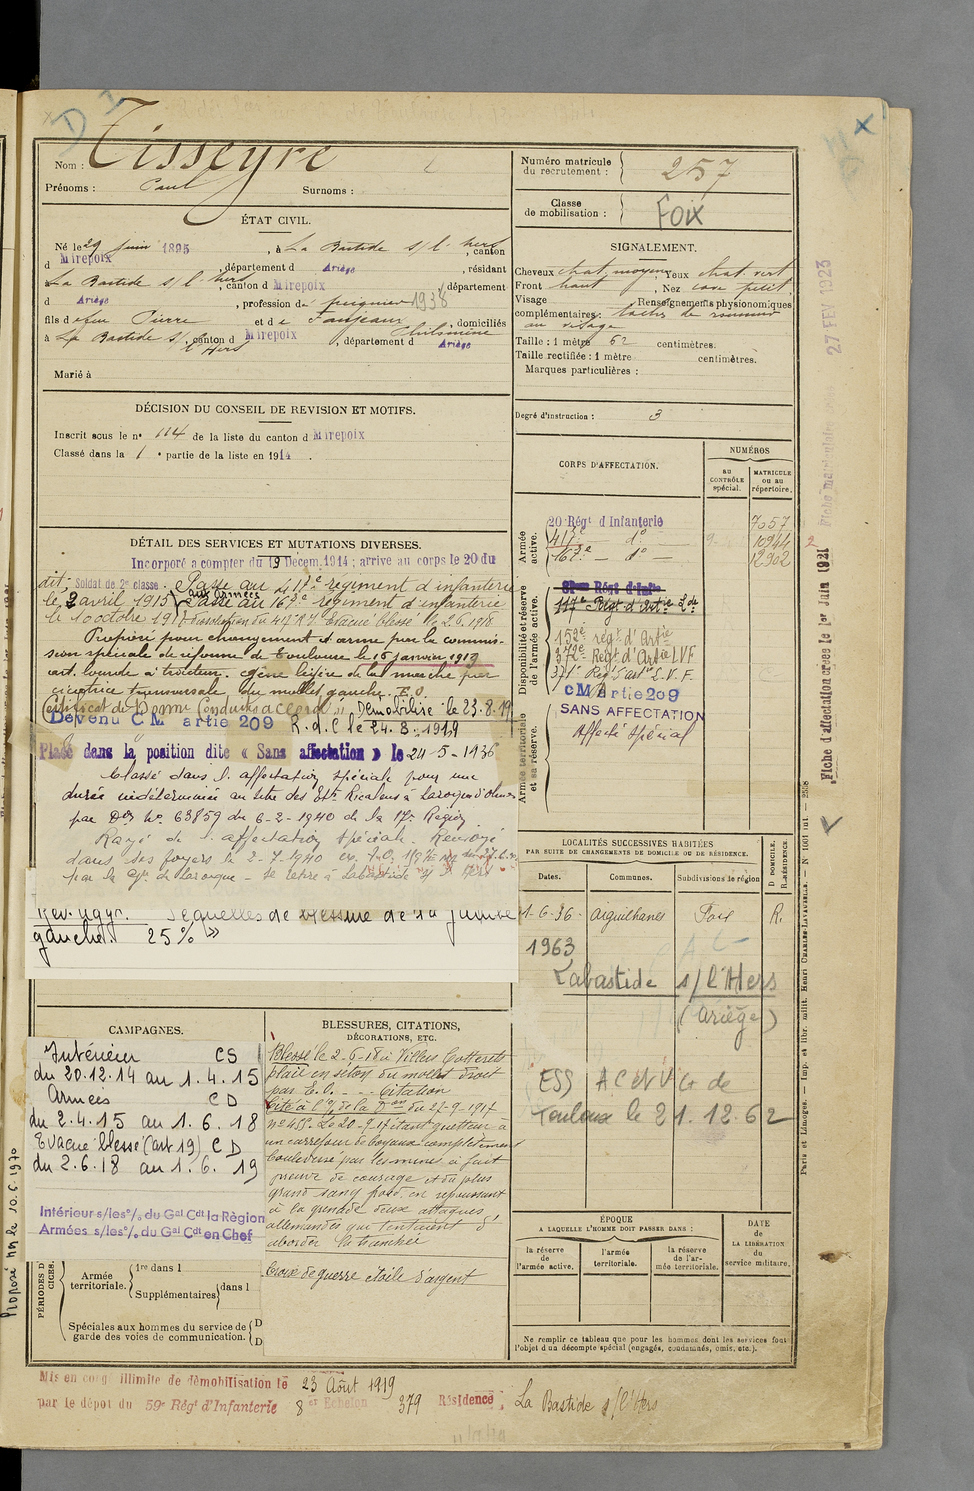 Nom : Tisseyre
Prénoms : Paul Surnoms :
ÉTAT CIVIL.
Né le 29 juin 1895, à La Bastide s/ l'hers, canton
d Mirepoix, département d Ariège, résidant
La Bastide s/ l'hers, canton d Mirepoix département
d Ariège, profession de peignier 1938
fils de feu Pierre et de Fanjeaux Philomène, domiciliés
à La Bastide s/ l'Hers, canton d Mirepoix, département d Ariège
Marié à
DÉCISION DU CONSEIL DE REVISION ET MOTIFS.
Inscrit sous le n° 114 de la liste du canton d Mirepoix
Classé dans la 1e partie de la liste en 1914.
DÉTAIL DES SERVICES ET MUTATIONS DIVERSES.
Incorporé a compter du 19 Décem. 1914; arrivé au corps le 20 du
dit; Soldat de 2e classe. Passé au 417e régiment d'infanterie
le 2 avril 1915 aux Armées Passé au 167e régiment d'infanterie
le 10 octobre 1917 (dissolution du 417 R.I. Evacué blessé le 2.6.1918
Proposé pour changement d'arme par la commis-
sion spéciale de réforme de Toulouse le 16 janvier 1919
art. lourde à tracteur. Gêne légère de la marche par
cicatrice transversale du mollet gauche. E.O.
Certificat de Bonne Conduite accordé. Démobilisé le 23.8.19
Devenu C M artie 209 R.d.C le 24.8.1919
Placé dans la position dite « Sans affectation » le 24-5-1936
Classé dans l'affectation spéciale pour une
durée indéterminée au titre des Etts Ricalens à Laroque d'Olmes
par Don No 63859 du 6-2-1940 de la 17e Région
Rayé de l'affectation spéciale. Renvoyé
dans ses foyers le 2-7-1940
par la Gie de Laroque - se retire à Labastide s/ l'Hers
Séquelles de blessure de la jambe
gauche. 25% »
CAMPAGNES.
Intérieur CS
du 20.12.14 au 1.4.15
Armées CD
du 2.4.15 au 1.6.18
Evacué blessé (art 19) CD
du 2.6.18 au 1.6.19
Intérieur s/les o/. du Gal Cdt la Région
Armées s/les o/. du Gal Cdt en Chef
PÉRIODES D
CICES.
Armée territoriale. 1re dans l
Supplémentaires dans l
Spéciales aux hommes du service de garde des voies de communication. D
D
BLESSURES, CITATIONS,
DÉCORATIONS, ETC.
Blessé le 2-6-18 à Villers Cotterets
plaie en séton du mollet droit
par E.O. - - - Citation
Cité à l'O. de la Don du 27-9-1917
n° 455. Le 20-9-17 étant guetteur à
un carrefour de boyaux complètement
bouleversé par les mines a fait
preuve de courage et du plus
grand sang froid en repoussant
à la grenade deux attaques
allemandes qui tentaient d'
aborder la tranchée
Croix de guerre étoile d'argent
Numéro matricule
du recrutement : 257
Classe
de mobilisation : Foix
SIGNALEMENT.
Cheveux chat. moyens Yeux chat. vert
Front haut, Nez cave petit
Visage Renseignements physionomiques
complémentaires: taches de rousseur
au visage
Taille : 1 mètre 62 centimètres.
Taille rectifiée : 1 mètre centimètres.
Marques particulières :
Degré d'instruction : 3
CORPS D'AFFECTATION.
NUMÉROS
AU CONTRÔLE spécial.
MATRICULE OU AU répertoire.
Armée active.
20e Régt d'Infanterie 7057
417e - do - 10944
167e - do - 12902
Disponibilité et réserve de l'armée active.
117e Régt d'Artie Lde
152e régt d'Artie
372e Régt d'Artie LVF
371e Régt d'artie L.V.F.
CM Artie 209
SANS AFFECTATION
Affecté Spécial
Armée territoriale et sa réserve.
LOCALITÉS SUCCESSIVES HABITÉES
PAR SUITE DE CHANGEMENTS DE DOMICILE OU DE RÉSIDENCE.
Dates. Communes. Subdivisions de région D. DOMICILE. R. RÉSIDENCE.
1-6-36 Aiguilhanes Foix R.
1963
Labastide s/l'Hers
(Ariège)
ESS AC et VG de
Toulouse le 21.12.62
ÉPOQUE
A LAQUELLE L'HOMME DOIT PASSER DANS :
la réserve de l'armée active.
l'armée territoriale.
la réserve de l'armée territoriale.
DATE
DE
LA LIBÉRATION
du
service militaire.
Ne remplir ce tableau que pour les hommes dont les services font
l'objet d'un décompte spécial (engagés, condamnés, omis, etc.).
Mis en congé illimité de démobilisation le 23 Août 1919
par le dépôt du 59e Régt d'Infanterie 8e Echelon 379 Résidence : La Bastide s/l'Hers
27 FEV 1923
Fiche d'affectation créée le 1er Juin 1931
Paris et Limoges. — Imp. et libr. milit. Henri CHARLES-LAVAUZELLE. — N° 1001 int. — 2538
Proposé non le 10.6.1970